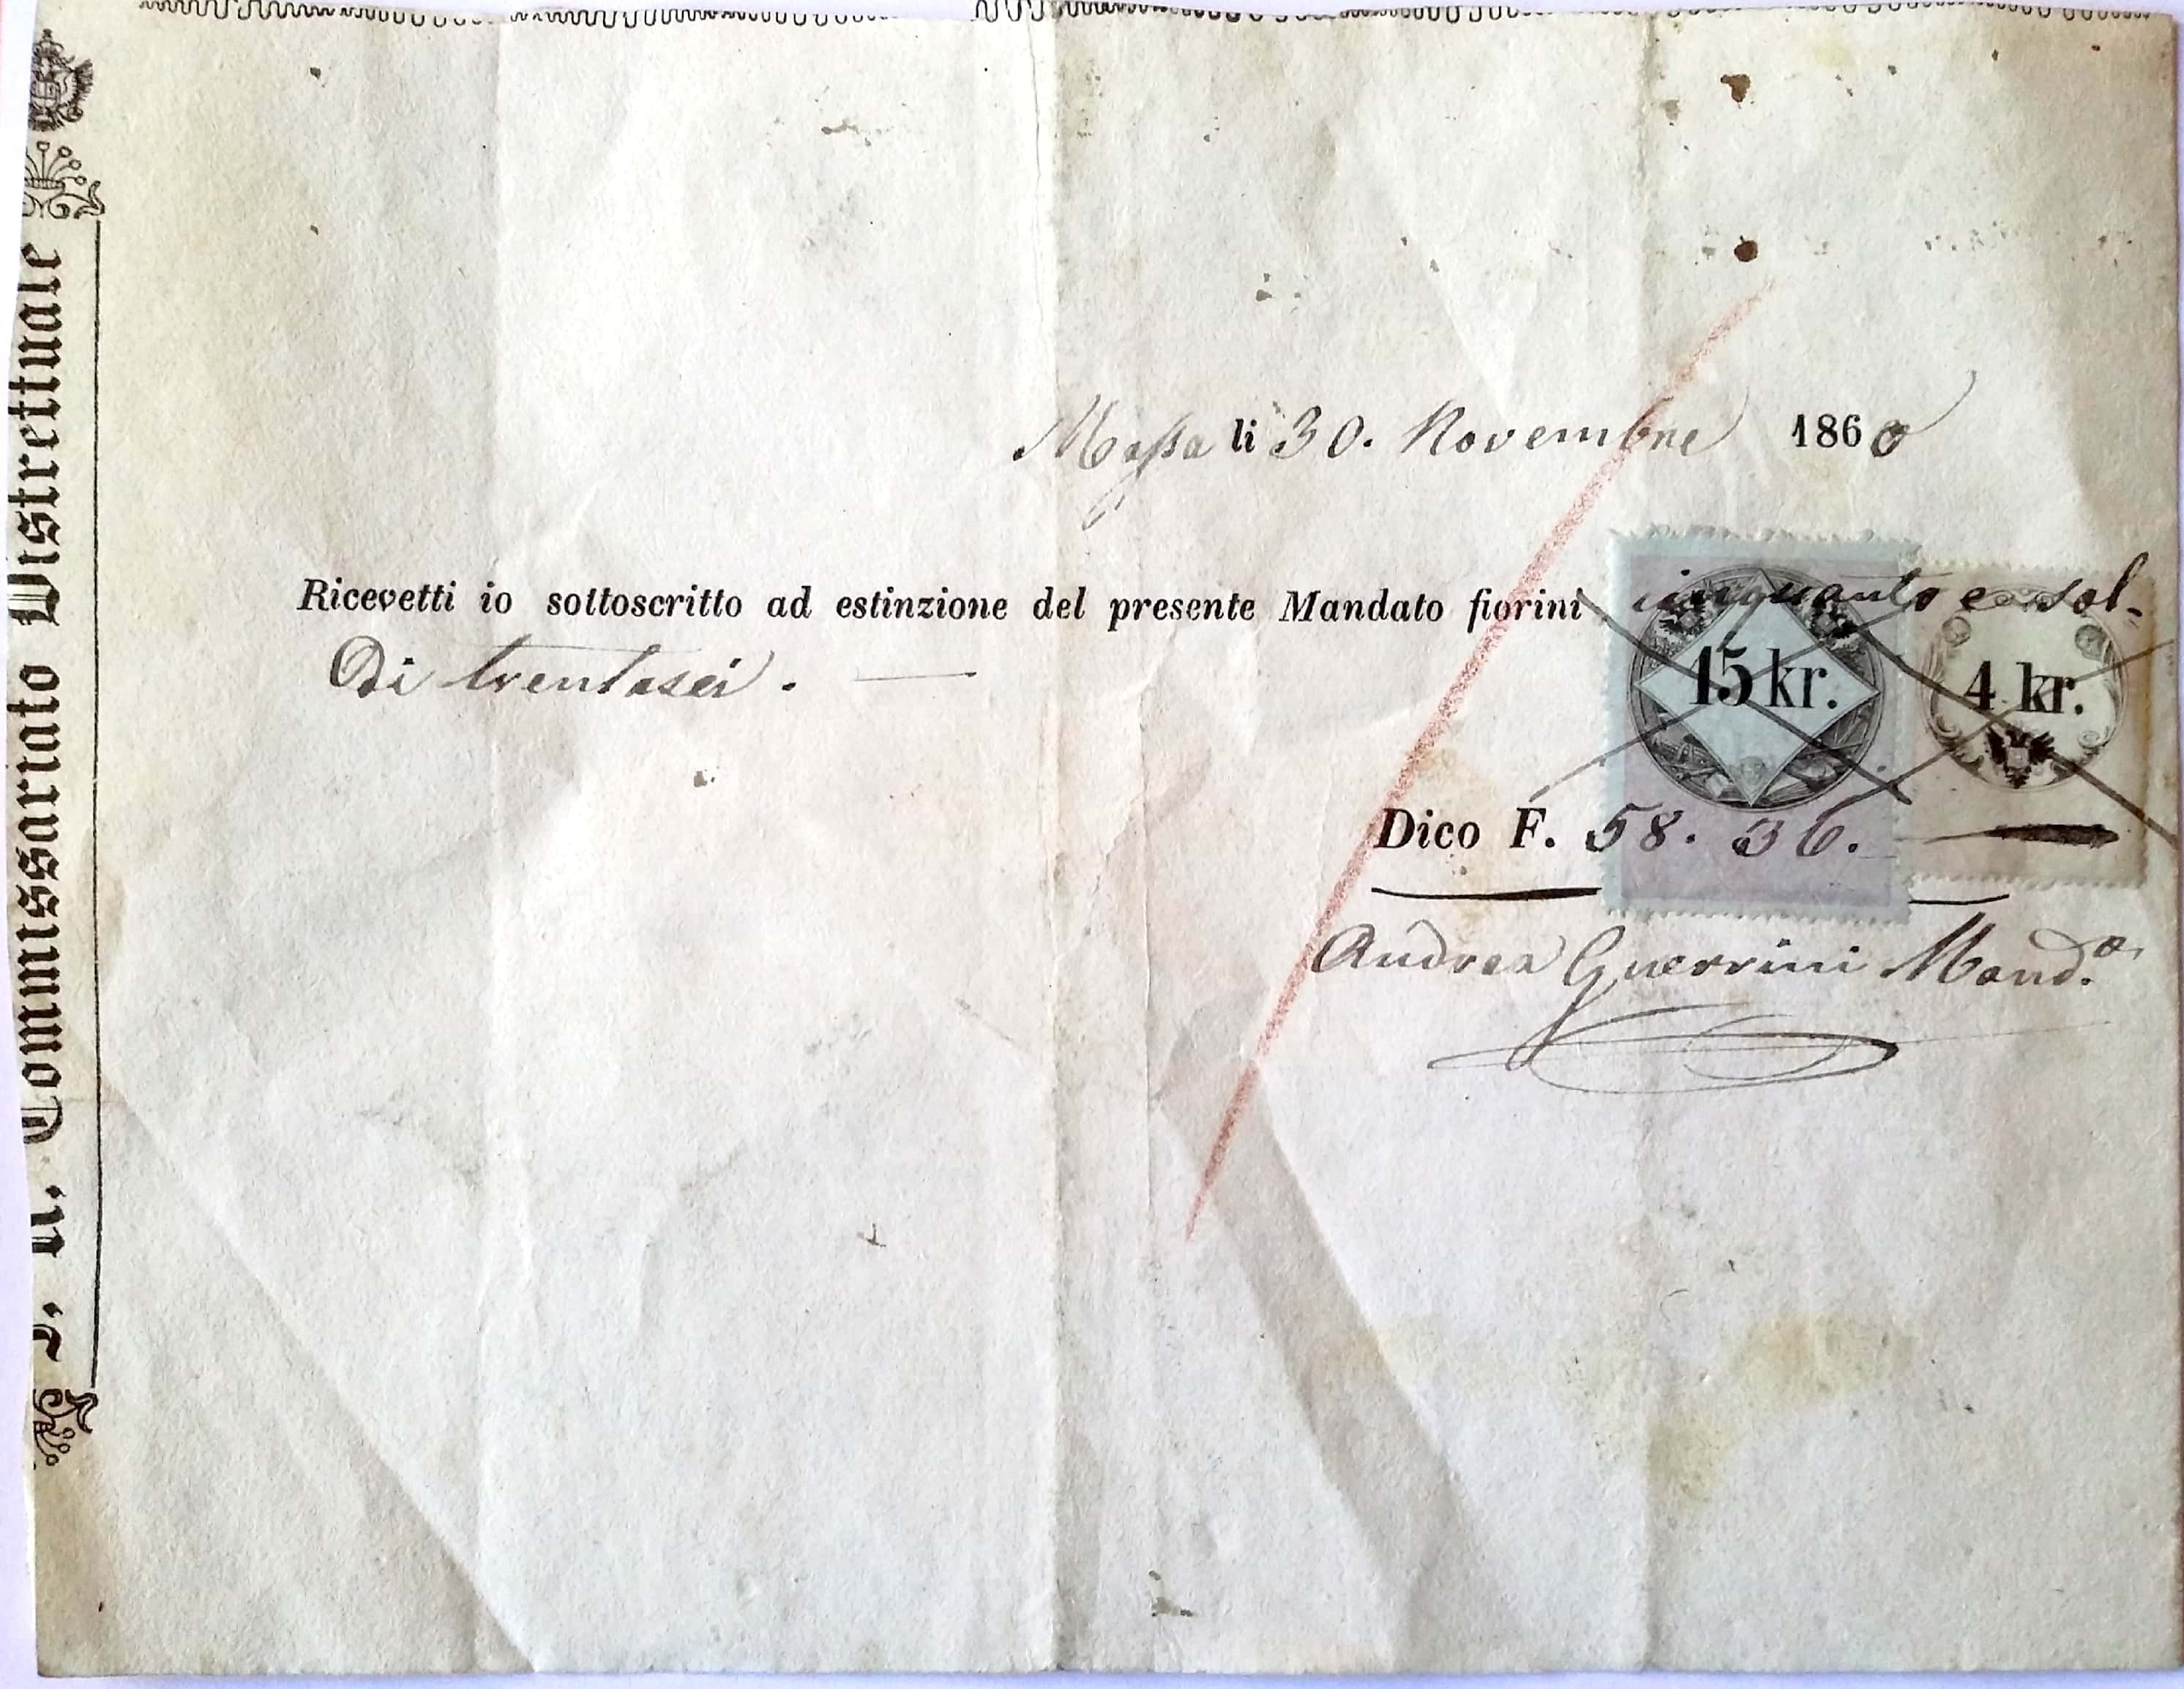 R. Commissariato Distrettuale
Massa li 30. Novembre 1860
Ricevetti io sottoscritto ad estinzione del presente Mandato fiorini cinquantotto e sol-
di trentasei.
15 kr.
4 kr.
Dico F. 58. 36.
Andrea Guerrini Mand.o